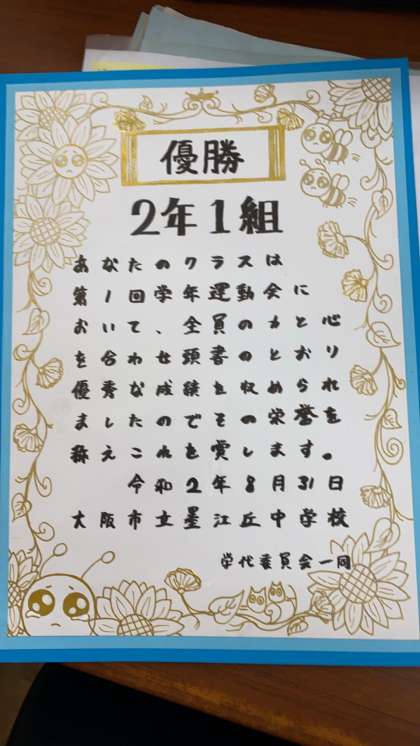 優勝
2年1組
あなたのクラスは
第1回学年運動会に
おいて、全員の力と心
を合わせ頭書のとおり
優秀な成績を収められ
ましたのでその栄誉を
称えこれを賞します。
令和2年8月31日
大阪市立墨江丘中学校
学代委員会一同